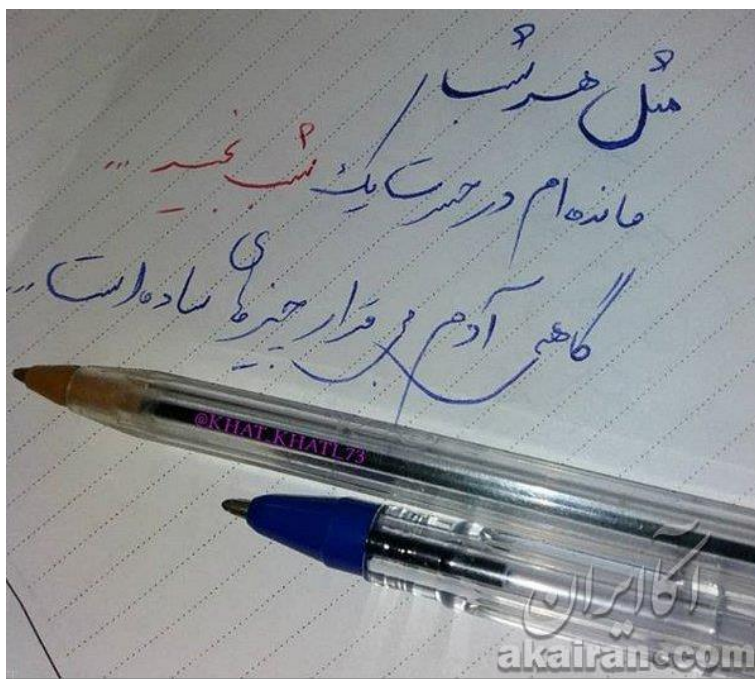 مثل هر شب
مانده ام در حسرت یک شب بخیر ...
گاهی آدم بی قرار چیزهای ساده است ...
@KHAT_KHATI_73
آکاایران
akairan.com